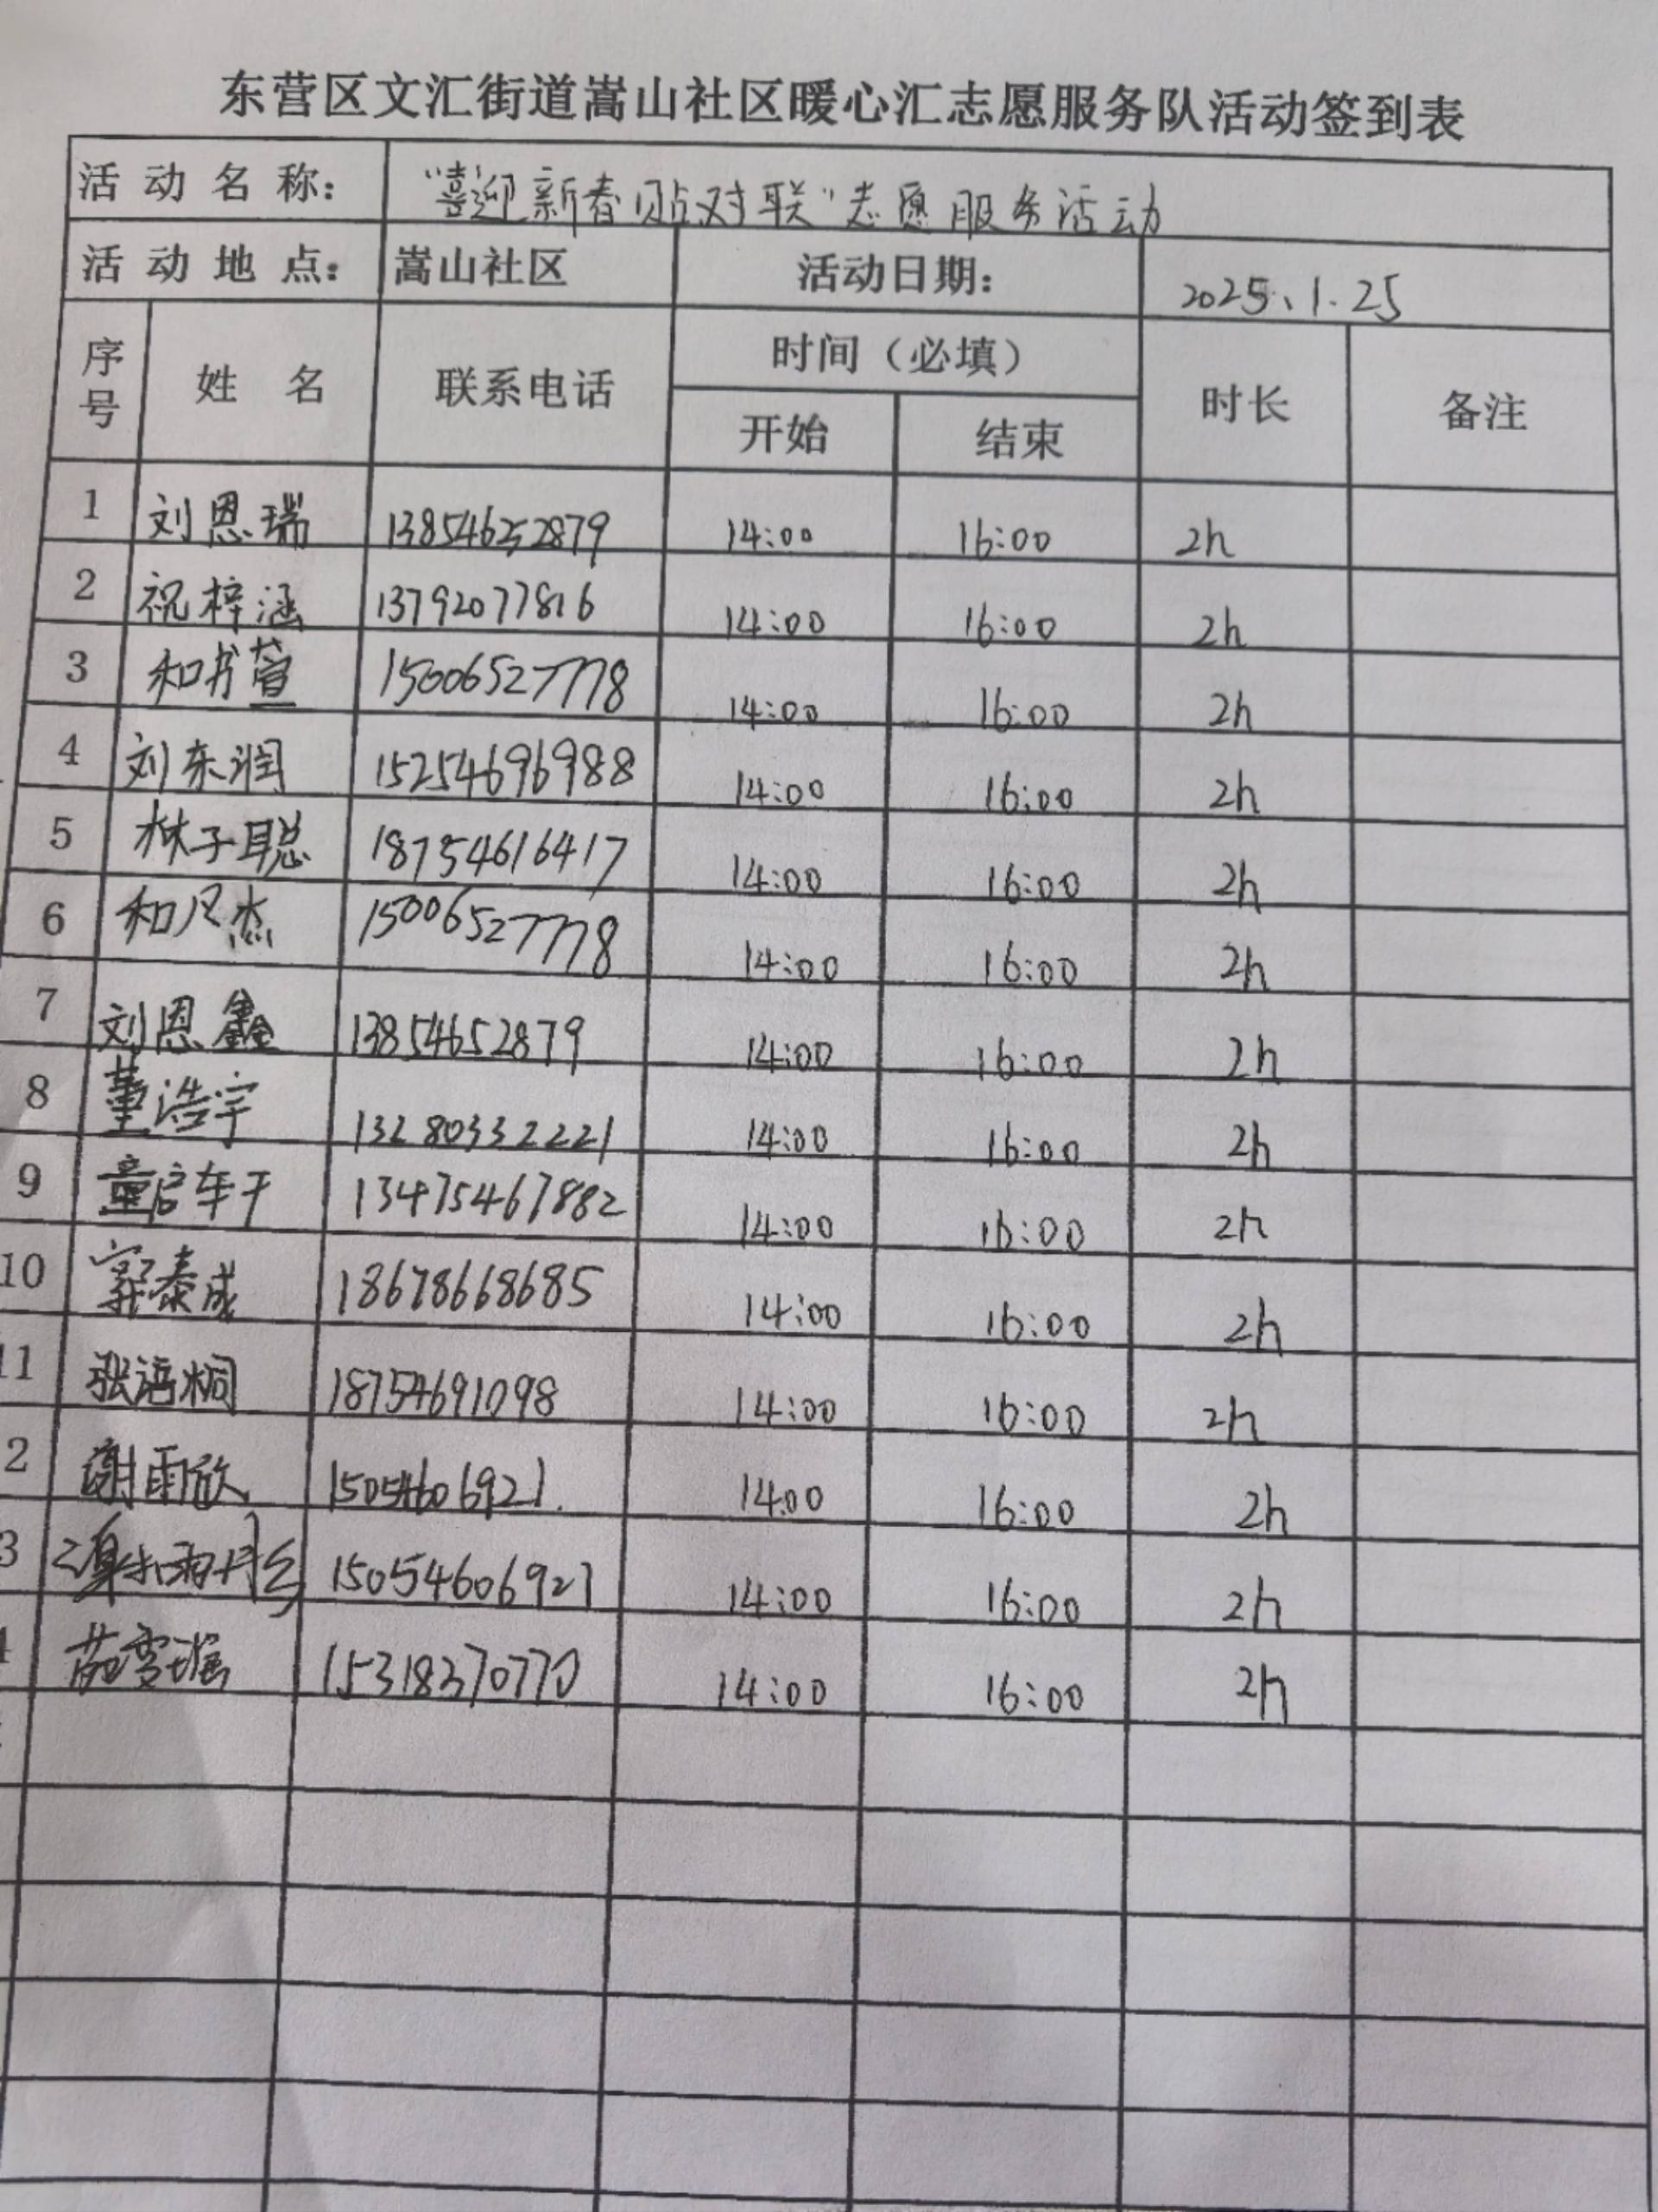 东营区文汇街道嵩山社区暖心汇志愿服务队活动签到表
活动名称： “喜迎新春贴对联”志愿服务活动
活动地点： 嵩山社区 活动日期： 2025、1.25
序号 姓名 联系电话 时间（必填） 时长 备注
开始 结束
1 刘恩瑞 13854652879 14:00 16:00 2h
2 祝梓涵 13792077816 14:00 16:00 2h
3 和书萱 15006527778 14:00 16:00 2h
4 刘东润 15254696988 14:00 16:00 2h
5 林子聪 18754616417 14:00 16:00 2h
6 和凡杰 15006527778 14:00 16:00 2h
7 刘恩鑫 13854652879 14:00 16:00 2h
8 董浩宇 13280332221 14:00 16:00 2h
9 13475467882 14:00 16:00 2h
10 泰成 18678668685 14:00 16:00 2h
11 张语桐 18754691098 14:00 16:00 2h
2 谢雨欣 15054606921. 14:00 16:00 2h
3 15054606921 14:00 16:00 2h
4 15318370770 14:00 16:00 2h